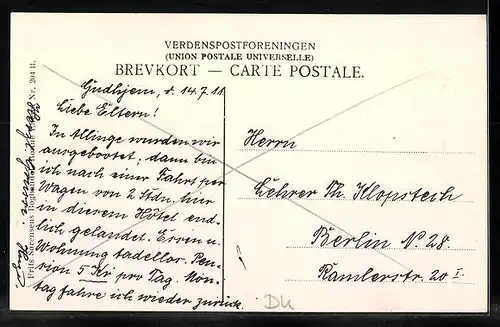 VERDENSPOSTFORENINGEN
(UNION POSTALE UNIVERSELLE)
BREVKORT — CARTE POSTALE.
Gudhjem, d. 14.7.11.
Liebe Eltern!
In Allinge wurden wir
ausgebootet, dann bin
ich nach einer Fahrt per
Wagen von 2 Stdn. hier
in diesem Hôtel end-
lich gelandet. Essen u.
Wohnung tadellos. Pen-
sion 5 Kr pro Tag. Mon-
tag fahre ich wieder zurück.
Herrn
Lehrer Th. Klopstech
Berlin N 28.
Ramlerstr. 20 I.
Frits Sørensens Boghandel Nr. 204 B.
DK